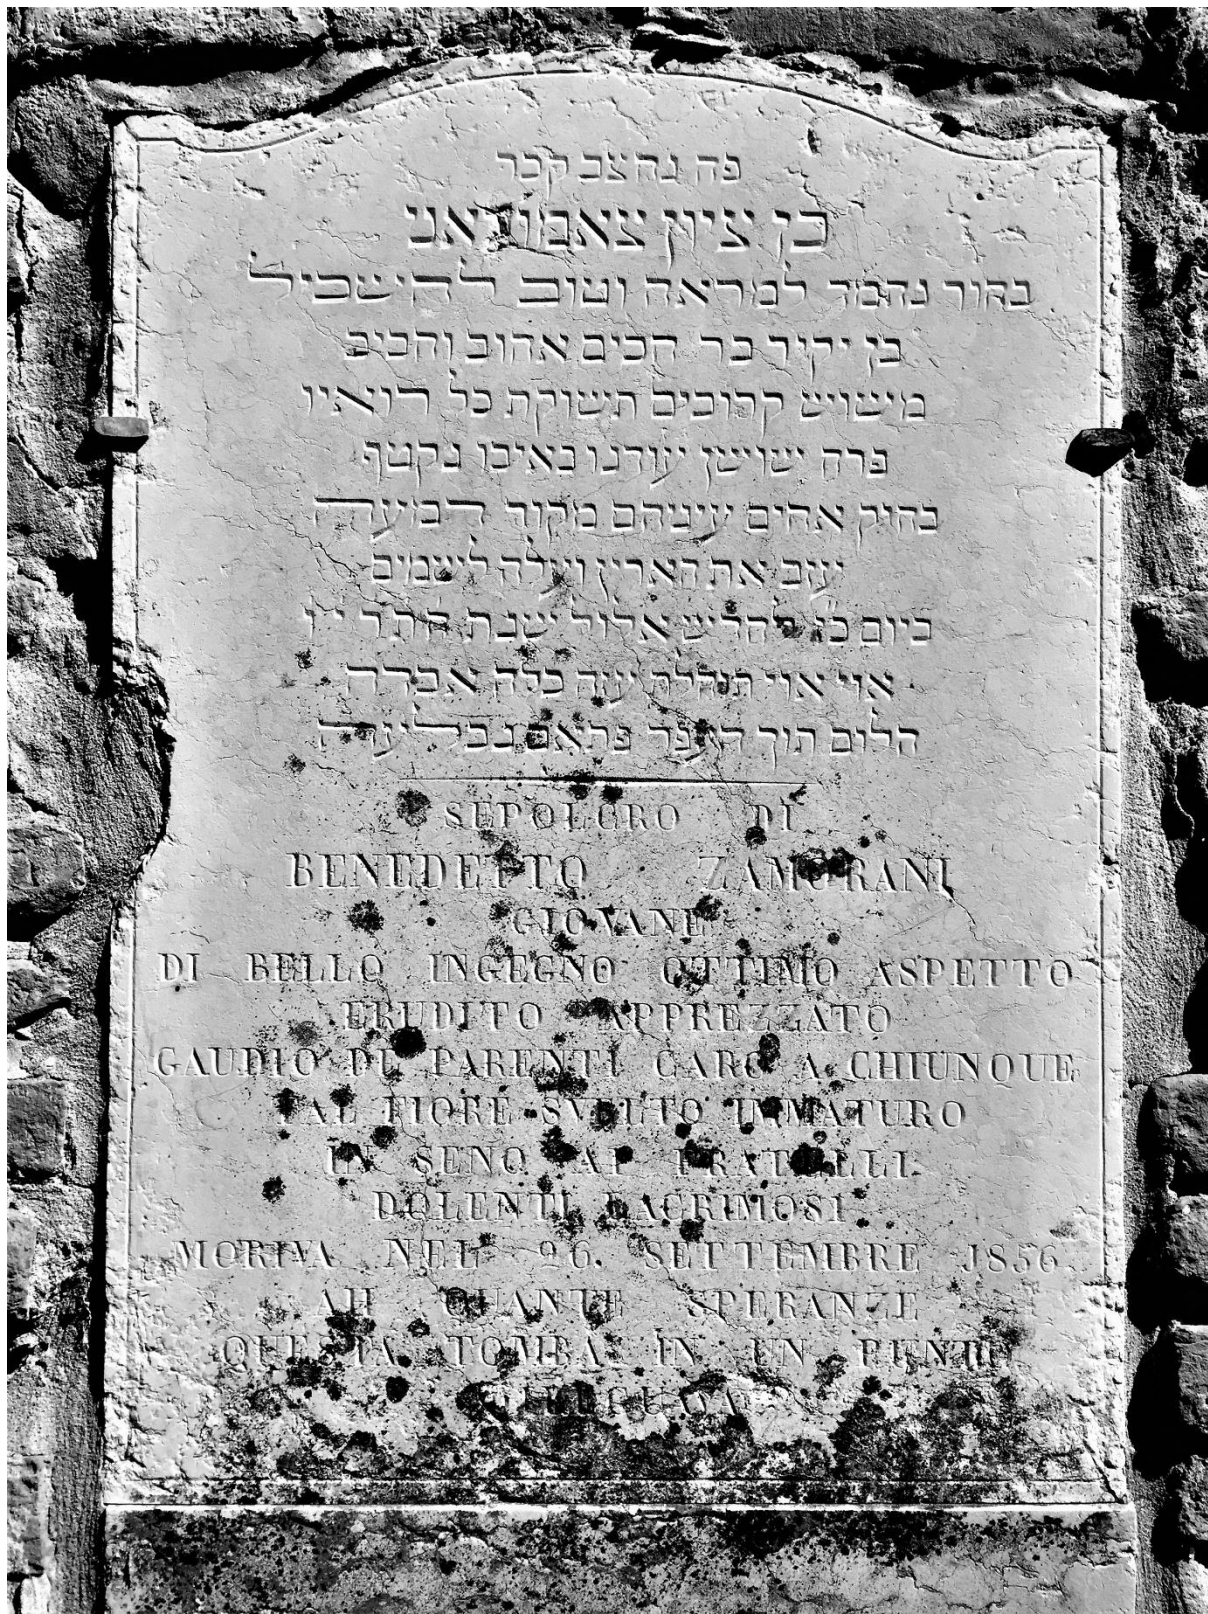 פה נחצב קבר
בן ציון צאמוראני
בחור נחמד למראה וטוב להשכיל
בן יקיר בר חכים אהוב וחביב
משוש קרובים תשוקת כל רואיו
פרח שושן עודנו באיבו נקטף
בחיק אחים עיניהם מקור דמעה
עזב את הארץ ועלה לשמים
ביום לחדש אלול שנת
אוי אוי תוחלת עזה כלה אבדה
הלום תוך העפר פתאם נבלעה
SEPOLCRO DI
BENEDETTO ZAMORANI
GIOVANE
DI BELLO INGEGNO OTTIMO ASPETTO
ERUDITO APPREZZATO
GAUDIO DI PARENTI CARO A CHIUNQUE
TAL FIORE SVELTO IMMATURO
IN SENO AI FRATELLI
DOLENTI LACRIMOSI
MORIVA NEL 26. SETTEMBRE 1856.
AH QUANTE SPERANZE
QUESTA TOMBA IN UN PUNTO